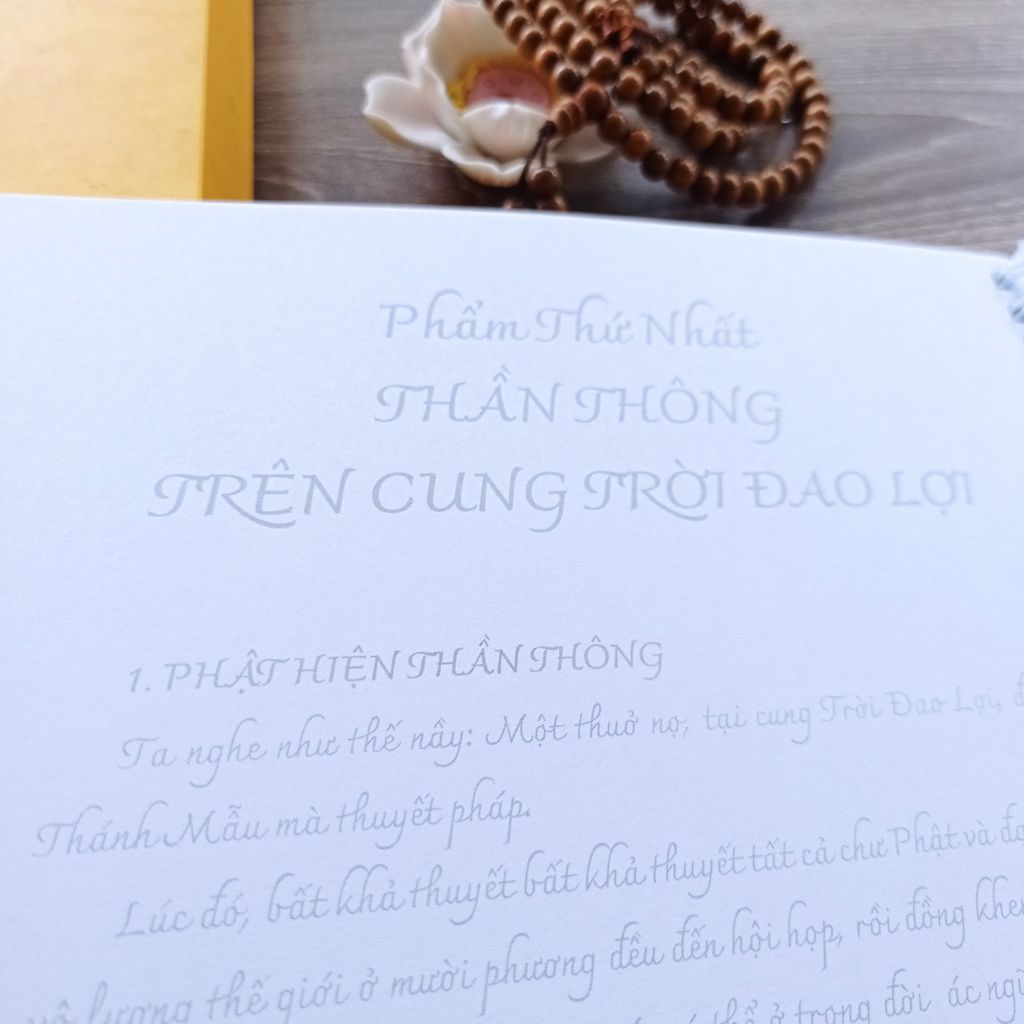 Phẩm Thứ Nhất
THẦN THÔNG
TRÊN CUNG TRỜI ĐAO LỢI
1. PHẬT HIỆN THẦN THÔNG
Ta nghe như thế nầy: Một thuở nọ, tại cung Trời Đao Lợi,
Thánh Mẫu mà thuyết pháp.
Lúc đó, bất khả thuyết bất khả thuyết tất cả chư Phật và
vô lượng thế giới ở mười phương đều đến hội họp, rồi đồng
thể ở trong đời ác